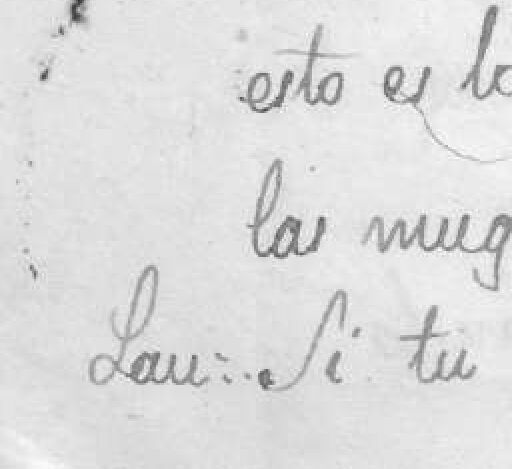 esto es lo
las mug
Lau:.. Si tu